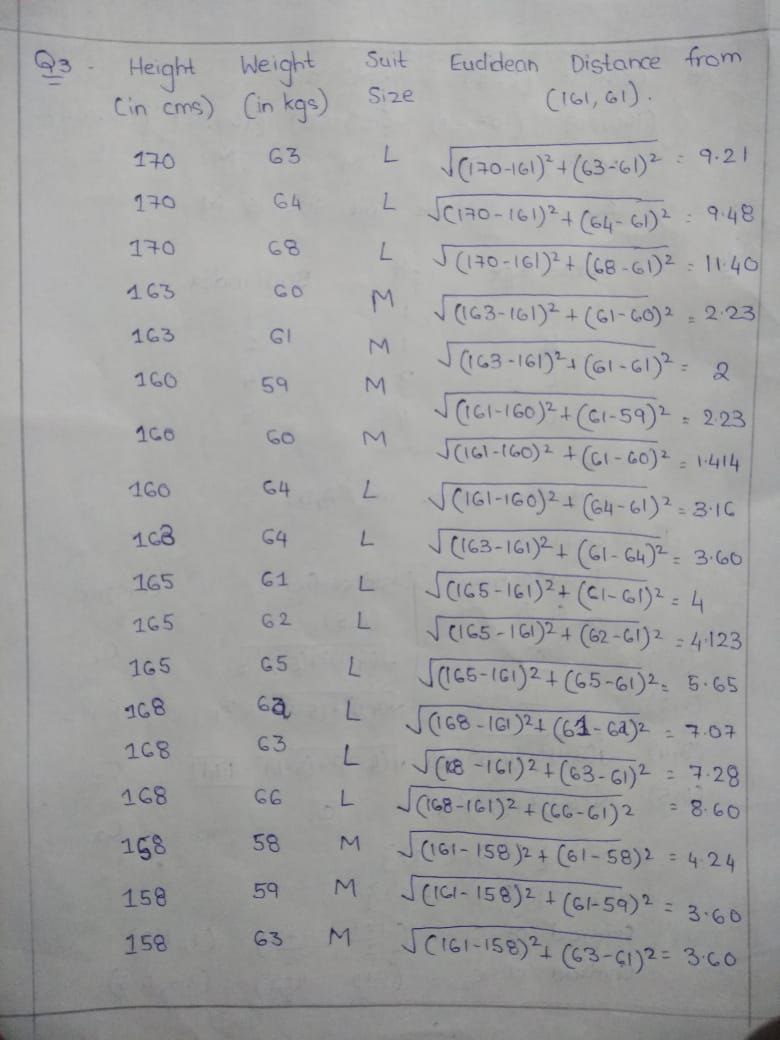 Q3. Height Weight Suit Euclidean Distance from
(in cms) (in kgs) Size (161, 61).
170 63 L √(170-161)²+(63-61)² = 9.21
170 64 L √(170-161)²+(64-61)² = 9.48
170 68 L √(170-161)²+(68-61)² = 11.40
163 60 M √(163-161)²+(61-60)² = 2.23
163 61 M √(163-161)²+(61-61)² = 2
160 59 M √(161-160)²+(61-59)² = 2.23
160 60 M √(161-160)²+(61-60)² = 1.414
160 64 L √(161-160)²+(64-61)² = 3.16
163 64 L √(163-161)²+(61-64)² = 3.60
165 61 L √(165-161)²+(61-61)² = 4
165 62 L √(165-161)²+(62-61)² = 4.123
165 65 L √(165-161)²+(65-61)² = 5.65
168 62 L √(168-161)²+(61-62)² = 7.07
168 63 L √(168-161)²+(63-61)² = 7.28
168 66 L √(168-161)²+(66-61)² = 8.60
158 58 M √(161-158)²+(61-58)² = 4.24
158 59 M √(161-158)²+(61-59)² = 3.60
158 63 M √(161-158)²+(63-61)² = 3.60